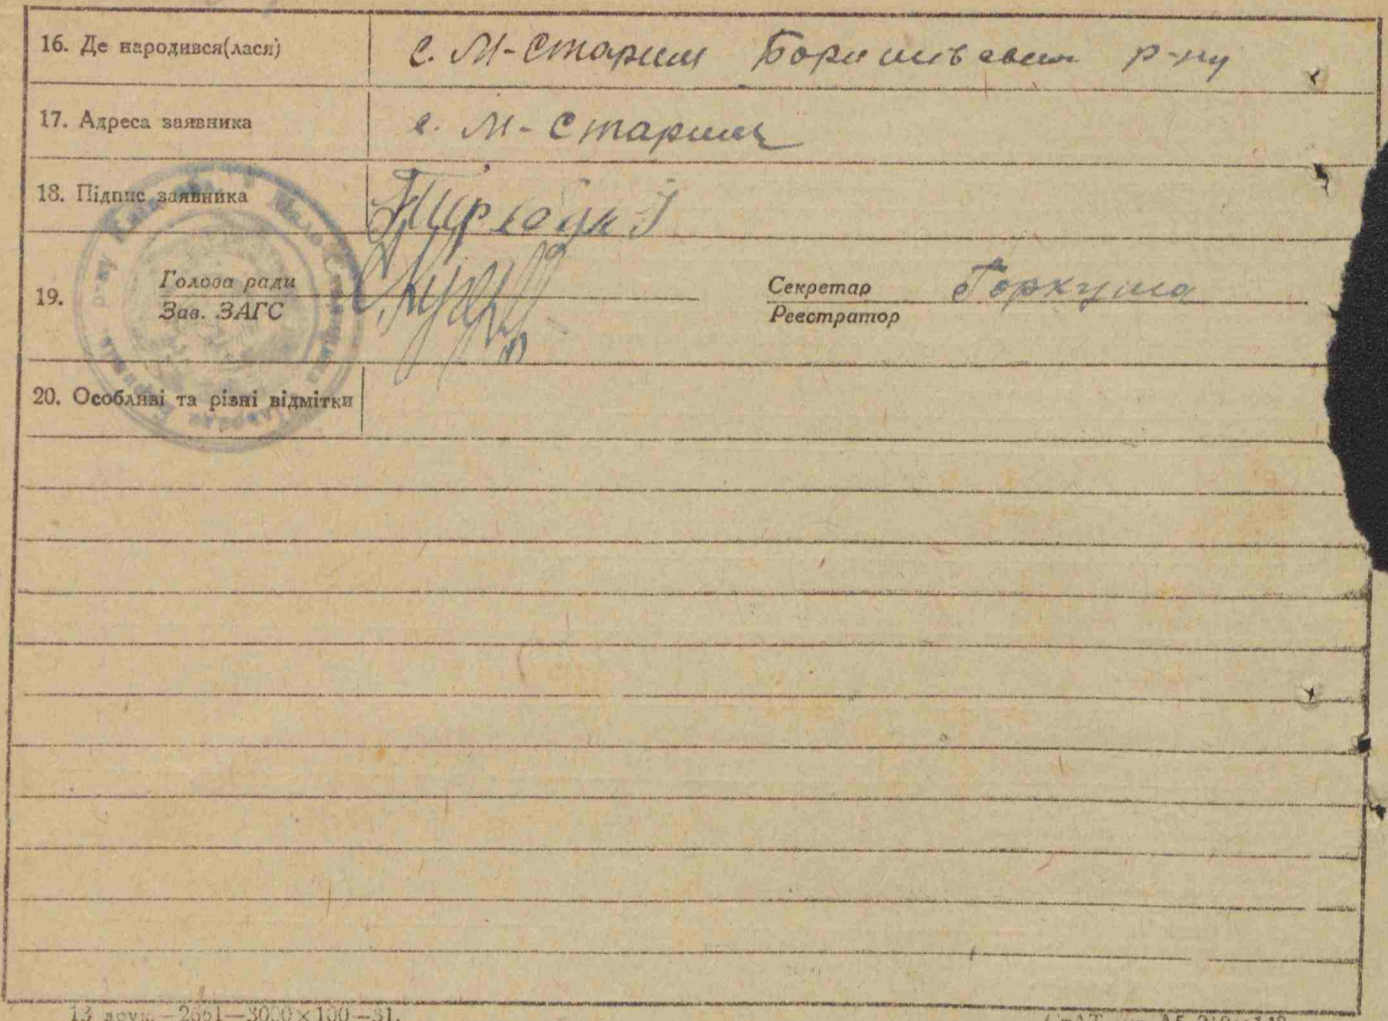 16. Де народився(лася) с. М-Стариця Боришівськ р-ну
17. Адреса заявника с. М-Стариця
18. Підпис заявника
19. Голова ради Секретар Горкуша
Зав. ЗАГС Реєстратор
20. Особливі та різні відмітки
13 друк.—2651—3000×100—31.